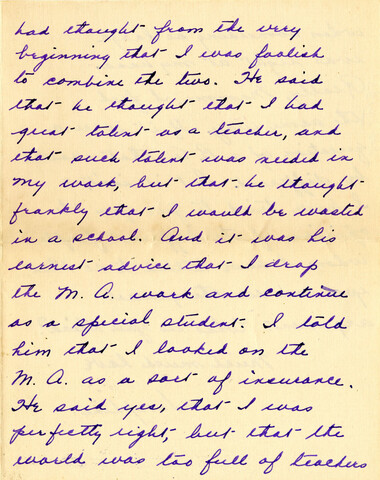 had thought from the very
beginning that I was foolish
to combine the two. He said
that he thought that I had
great talent as a teacher, and
that such talent was needed in
my work, but that he thought
frankly that I would be wasted
in a school. And it was his
earnest advice that I drop
the M. A. work and continue
as a special student. I told
him that I looked on the
M. A. as a sort of insurance.
He said yes, that I was
perfectly right, but that the
world was too full of teachers